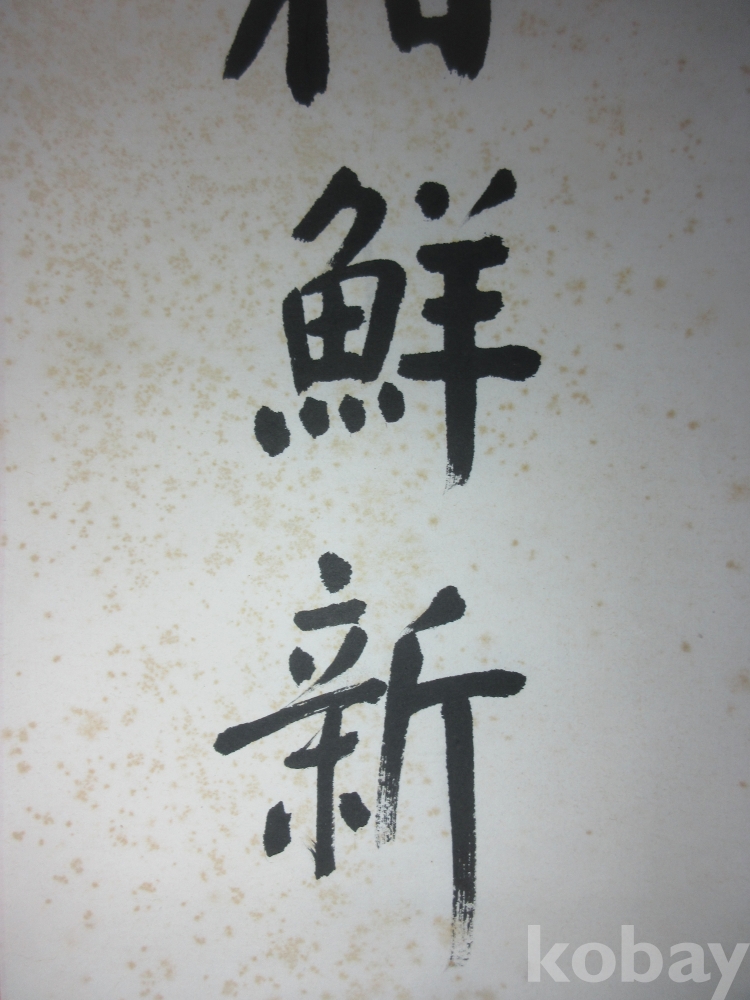 鮮
新
kobay